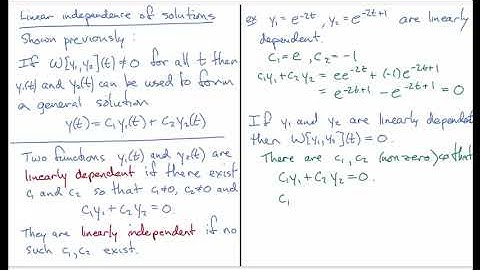 Linear independence of solutions
Shown previously:
If W[y₁,y₂](t) ≠ 0 for all t then
y₁(t) and y₂(t) can be used to form
a general solution
y(t) = C₁y₁(t) + C₂y₂(t)
Two functions y₁(t) and y₂(t) are
linearly dependent if there exist
c₁ and c₂ so that c₁≠0, c₂≠0 and
c₁y₁ + c₂y₂ = 0.
They are linearly independent if no
such c₁, c₂ exist.
ex y₁ = e^{-2t}, y₂ = e^{-2t+1} are linearly
dependent.
C₁ = e, C₂ = -1
C₁y₁ + C₂y₂ = ee^{-2t} + (-1)e^{-2t+1}
= e^{-2t+1} - e^{-2t+1} = 0
If y₁ and y₂ are linearly dependent
then W[y₁,y₂](t) = 0.
There are c₁, c₂ (non-zero) so that
C₁y₁ + C₂y₂ = 0.
C₁